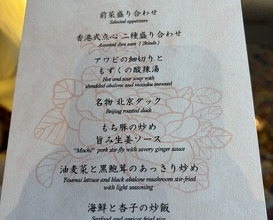 前菜盛り合わせ
Selected appetizers
香港式点心 二種盛り合わせ
Assorted dim sum ( 2kinds )
アワビの細切りと
もずくの酸辣湯
Hot and sour soup with
shredded abalone and mozuku seaweed
名物 北京ダック
Beijing roasted duck
もち豚の炒め
旨み生姜ソース
"Mochi" pork stir-fry with savory ginger sauce
油麦菜と黒鮑茸のあっさり炒め
Youmai lettuce and black abalone mushroom stir-fried
with light seasoning
海鮮と杏子の炒飯
Seafood and apricot fried rice